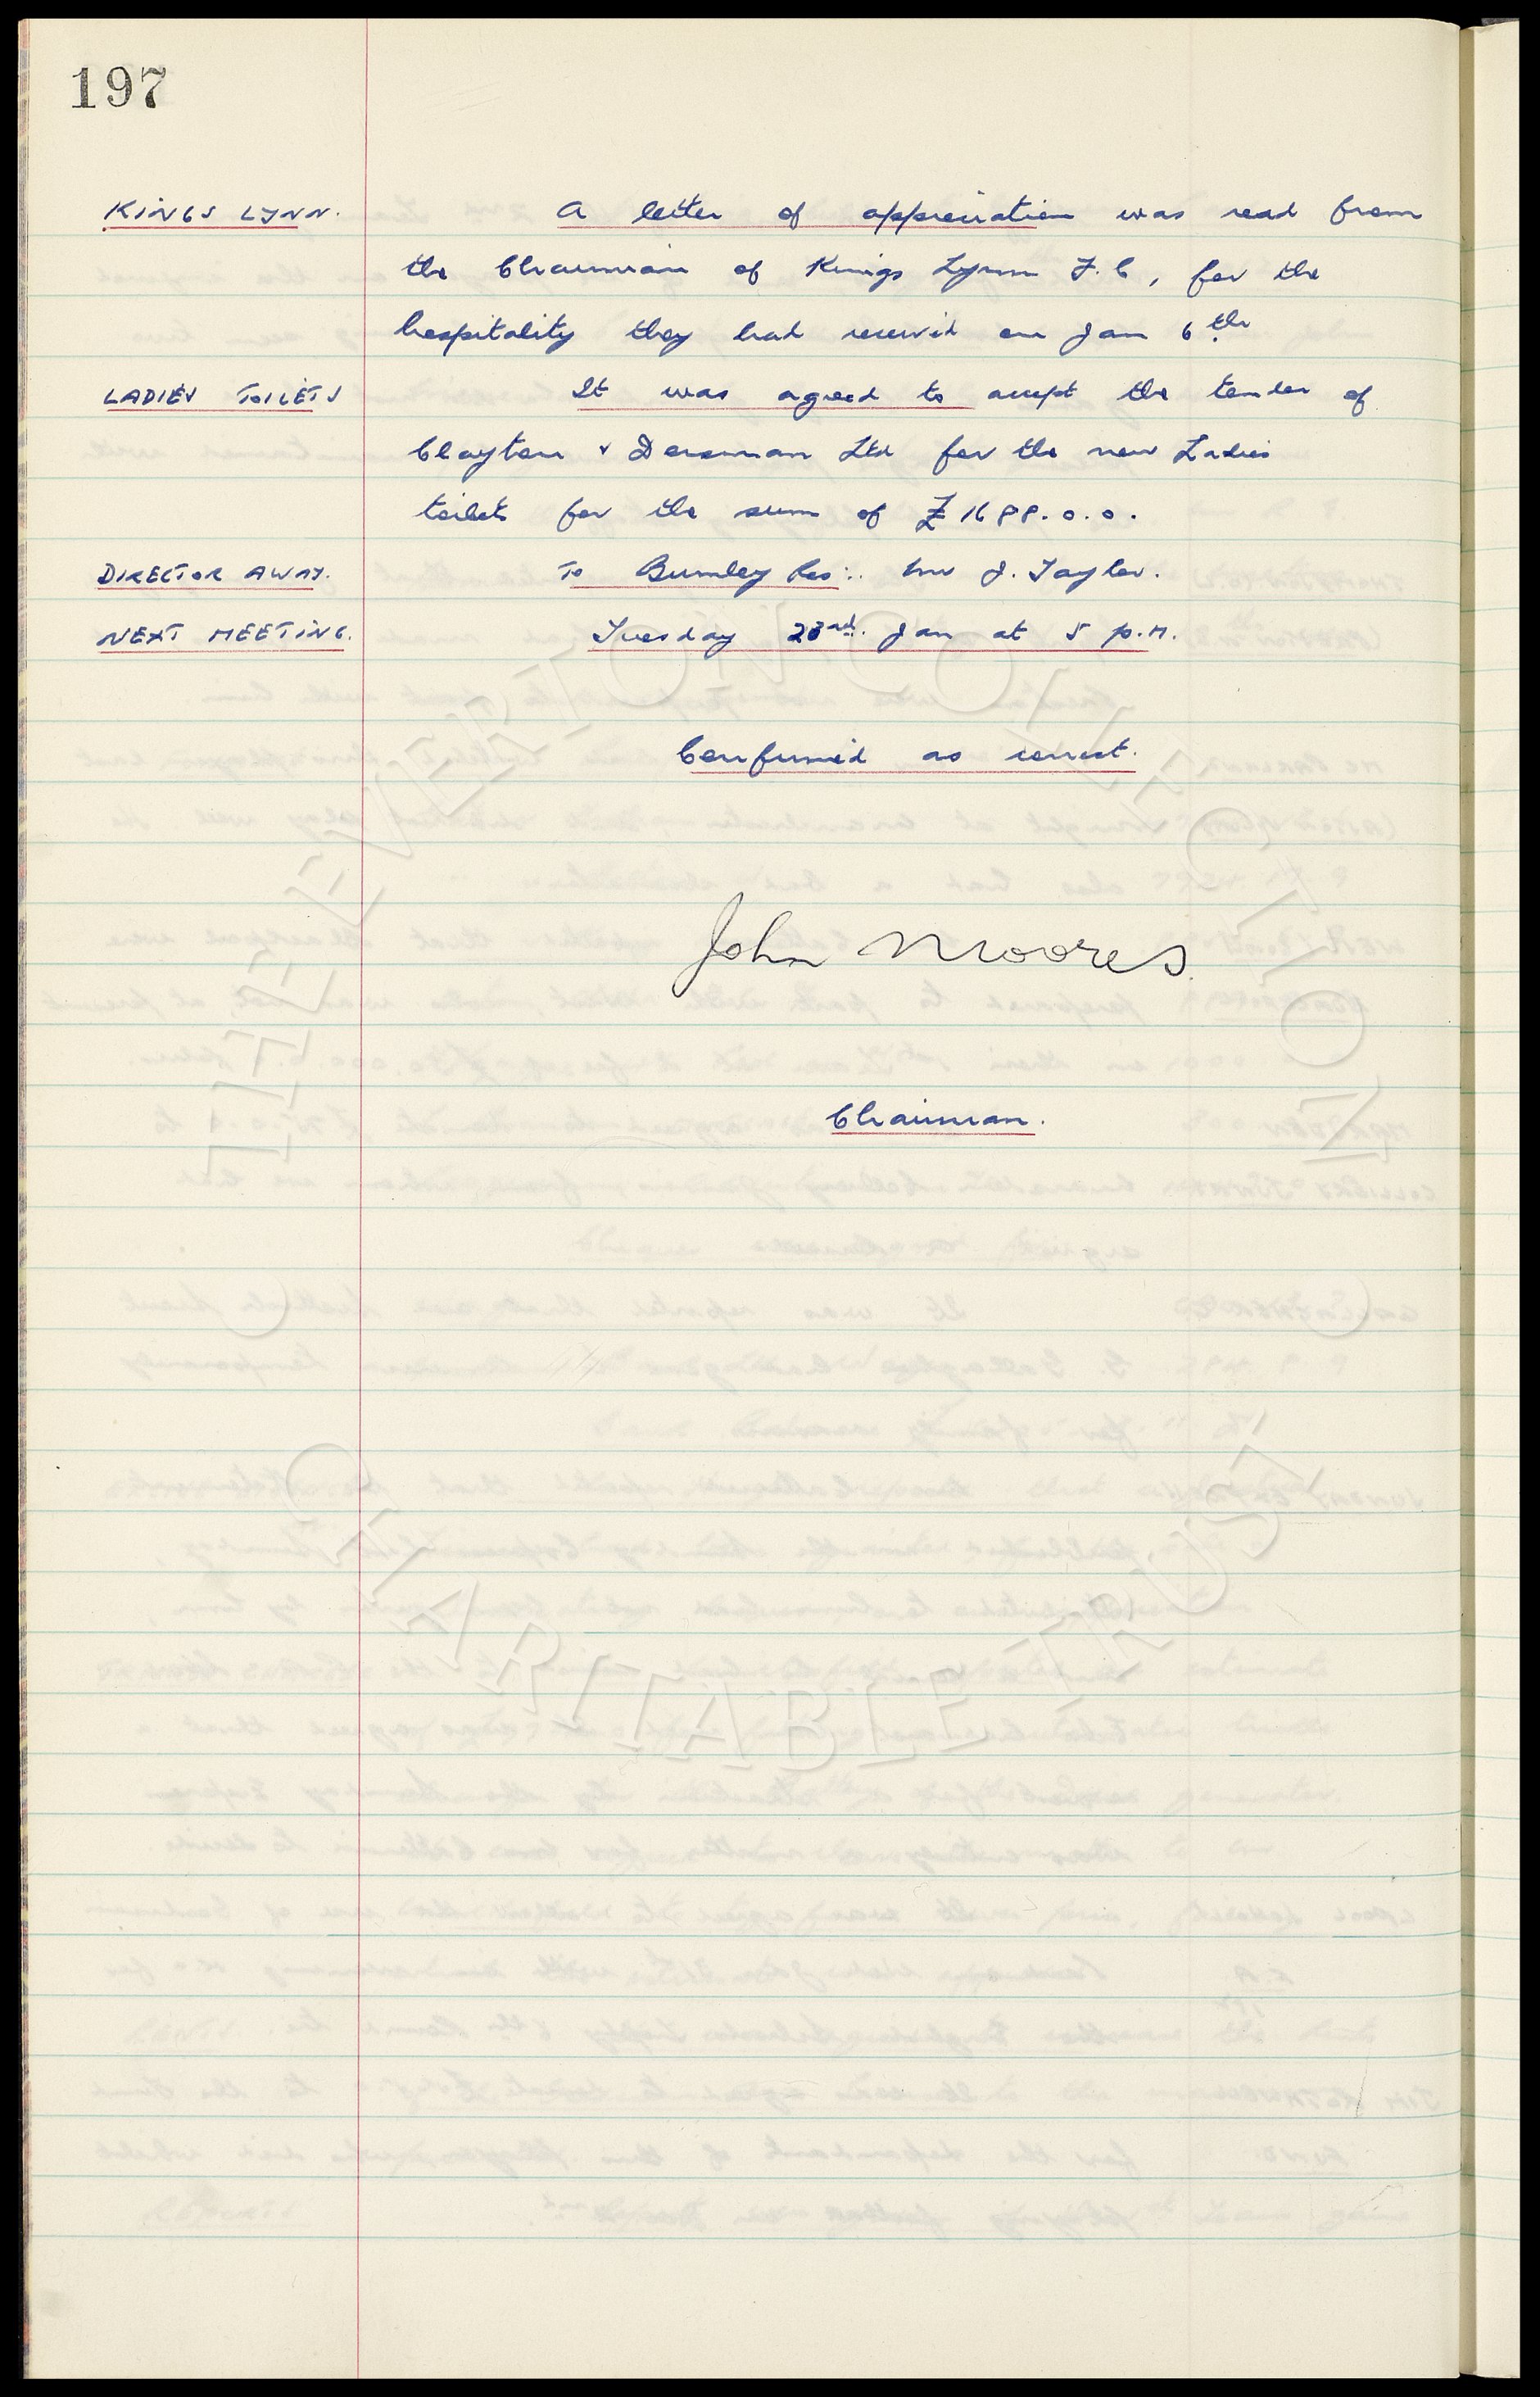 197
KINGS LYNN. A letter of appreciation was read from
the Chairman of Kings Lynn F.C, for the
hospitality they had received on Jan 6th.
LADIES TOILETS It was agreed to accept the tender of
Clayton & Dorsman Ltd for the new Ladies
toilets for the sum of £1688.0.0.
DIRECTOR AWAY. To Burnley Res:. Mr J. Taylor.
NEXT MEETING. Tuesday 23rd. Jan at 5 p.m.
Confirmed as correct.
John Moores.
Chairman.
THE EVERTON COLLECTION
CHARITABLE TRUST